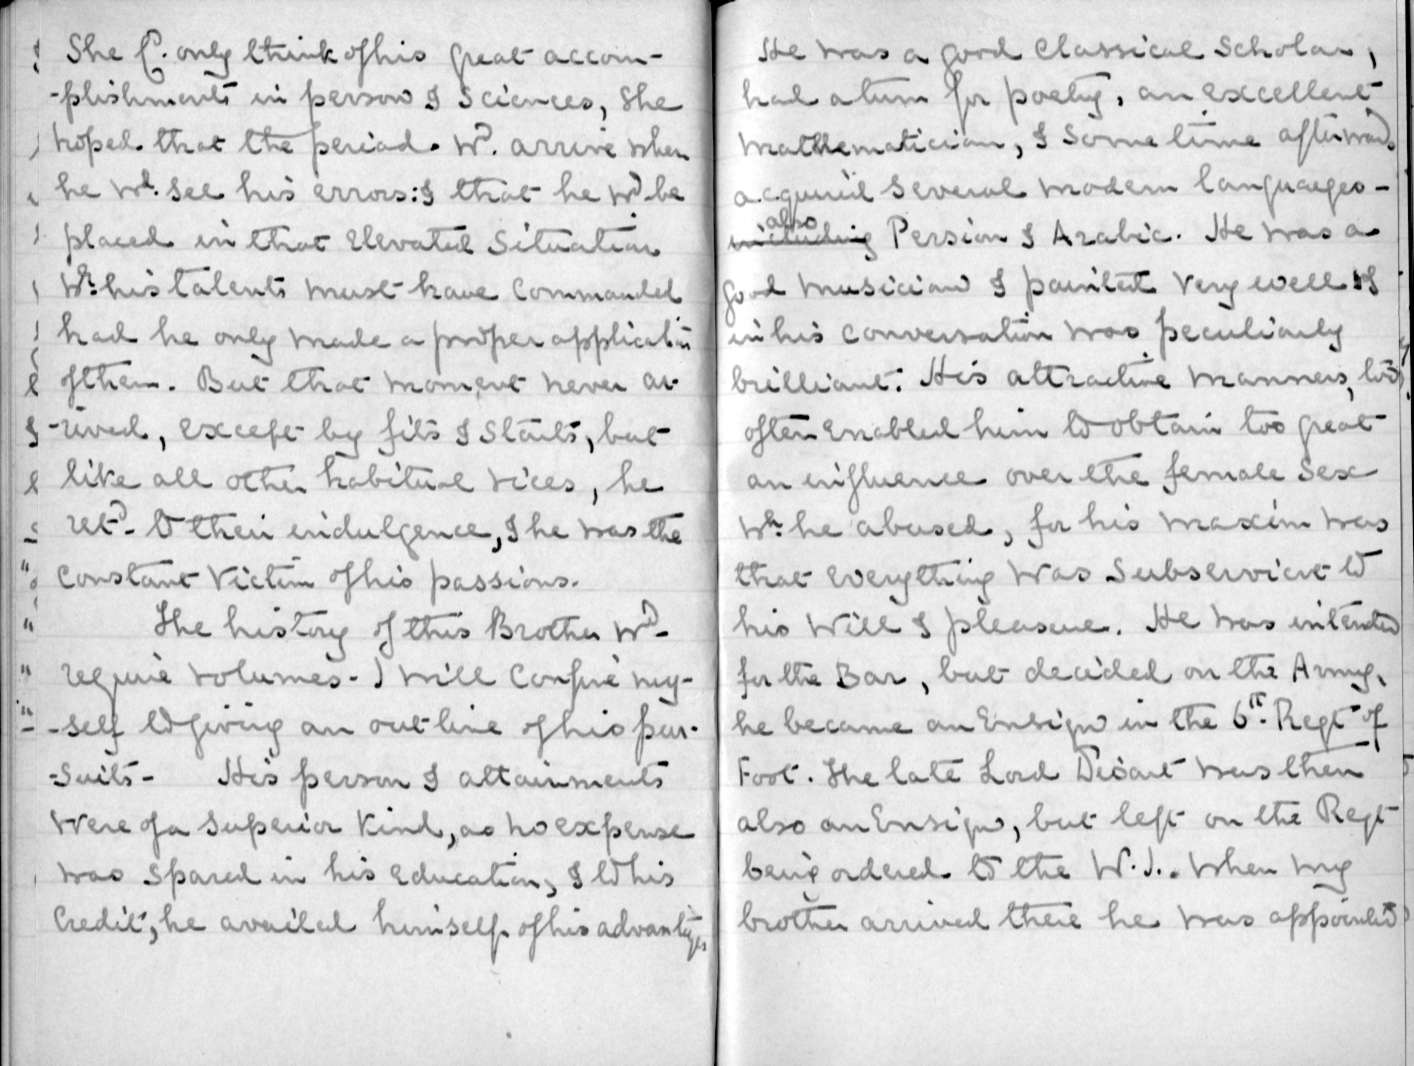 She C. only think of his great accom-
-plishments in person & Sciences, She
hoped that the period wd. arrive when
he wd. see his errors: & that he wd. be
placed in that Elevated Situation
wh. his talents must have Commanded
had he only made a proper application
of them. But that moment never ar-
-rived, except by fits & Starts, but
like all other habitual vices, he
retd. to their indulgence, & he was the
Constant Victim of his passions.
The history of this Brother wd.
require volumes - I will Confine my-
-self to giving an outline of his pur-
-Suits - His person & attainments
were of a Superior Kind, as no expense
was Spared in his Education, & to his
Credit, he availed himself of his advantages
He was a good Classical Scholar,
had a turn for poetry, an excellent
Mathematician, & Some time afterwards
acquired Several modern languages -
also
including Persian & Arabic. He was a
good musician & painted very well &
in his conversation was peculiarly
brilliant. His attractive manners, too
often Enabled him to obtain too great
an influence over the female Sex
wh. he abused, for his maxim was
that everything was Subservient to
his Will & pleasure. He was intended
for the Bar, but decided on the Army,
he became an Ensign in the 6th. Regt. of
Foot. The late Lord Desart was then
also an Ensign, but left on the Regt
being ordered to the W.I.. When my
brother arrived there he was appointed